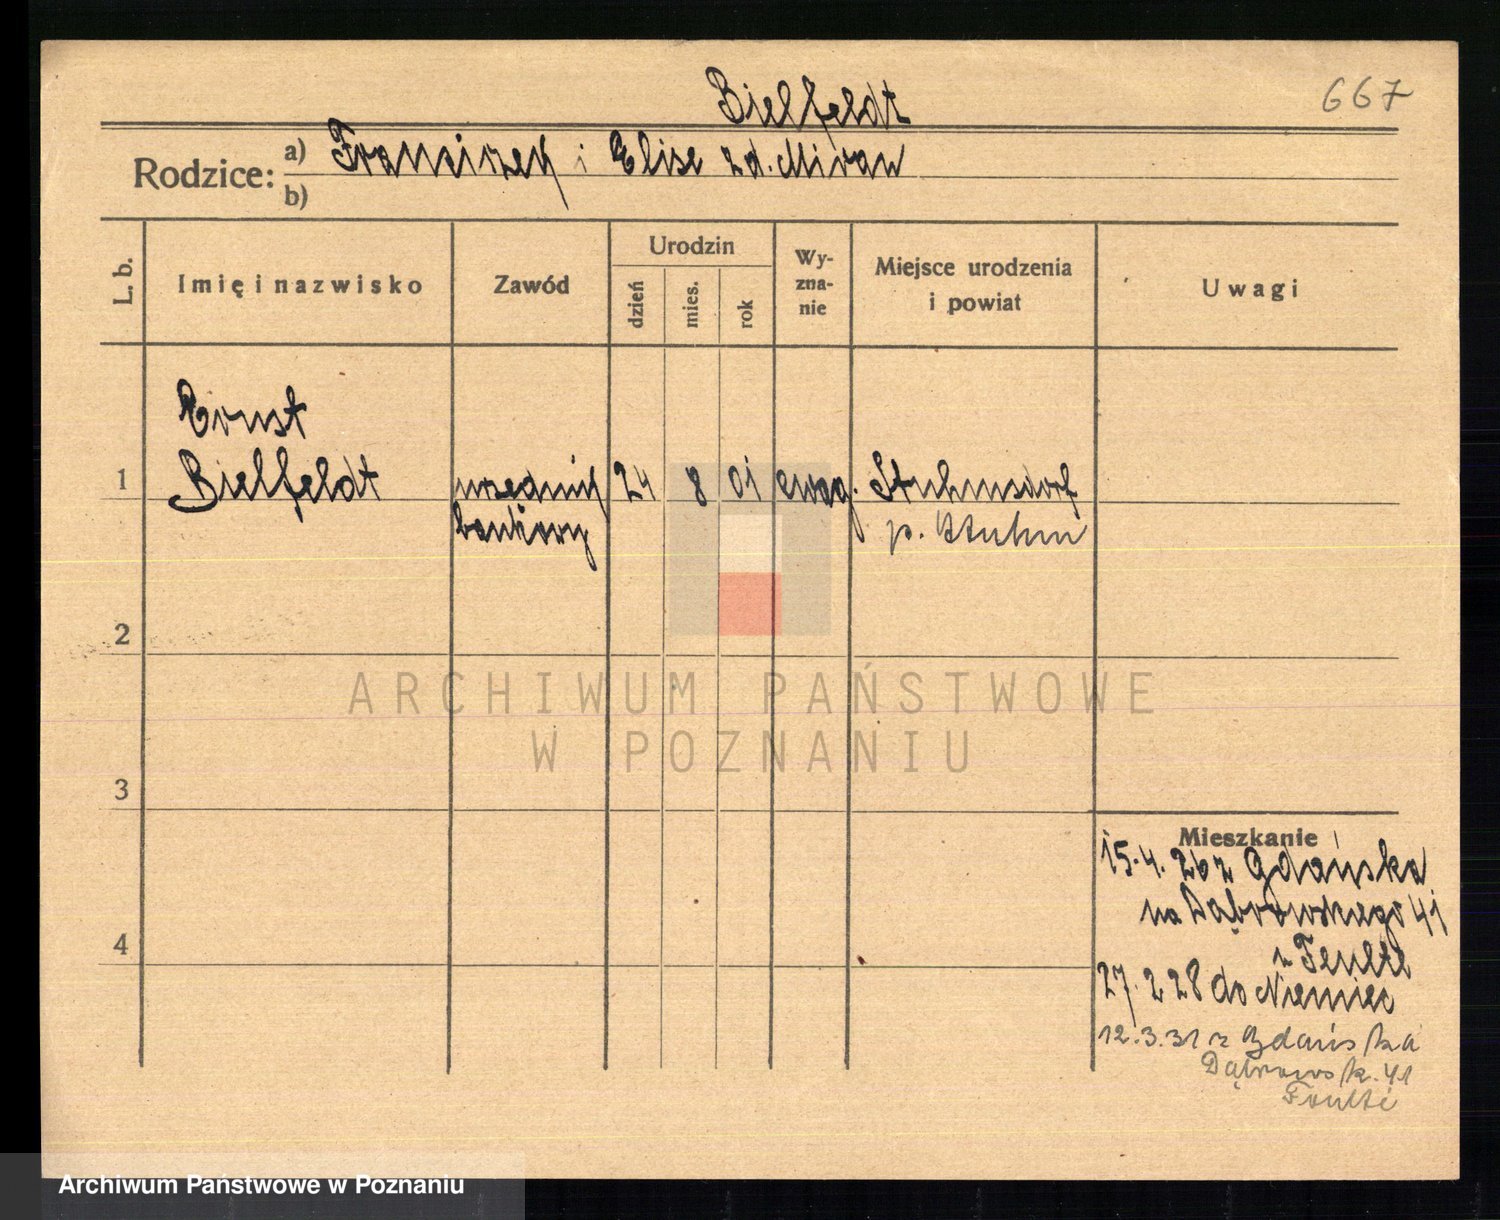 667
Bielfeldt
Rodzice: a) Franciszek i Elise zd. Miran
b)
L. b.
Imię i nazwisko
Zawód
Urodzin
dzień
mies.
rok
Wy-
zna-
nie
Miejsce urodzenia
i powiat
Uwagi
Ernst
1 Bielfeldt urzędnik 24 8 01 ewag. Stuhmsdorf
bankowy p. Stuhm
2
3
4
Mieszkanie
15.4.26 z Gdańska
na Dąbrowskiego 41
27.2 28 do Niemiec
12.3.31 z Gdańska
Dąbrowsk. 41
ARCHIWUM PAŃSTWOWE
W POZNANIU
Archiwum Państwowe w Poznaniu